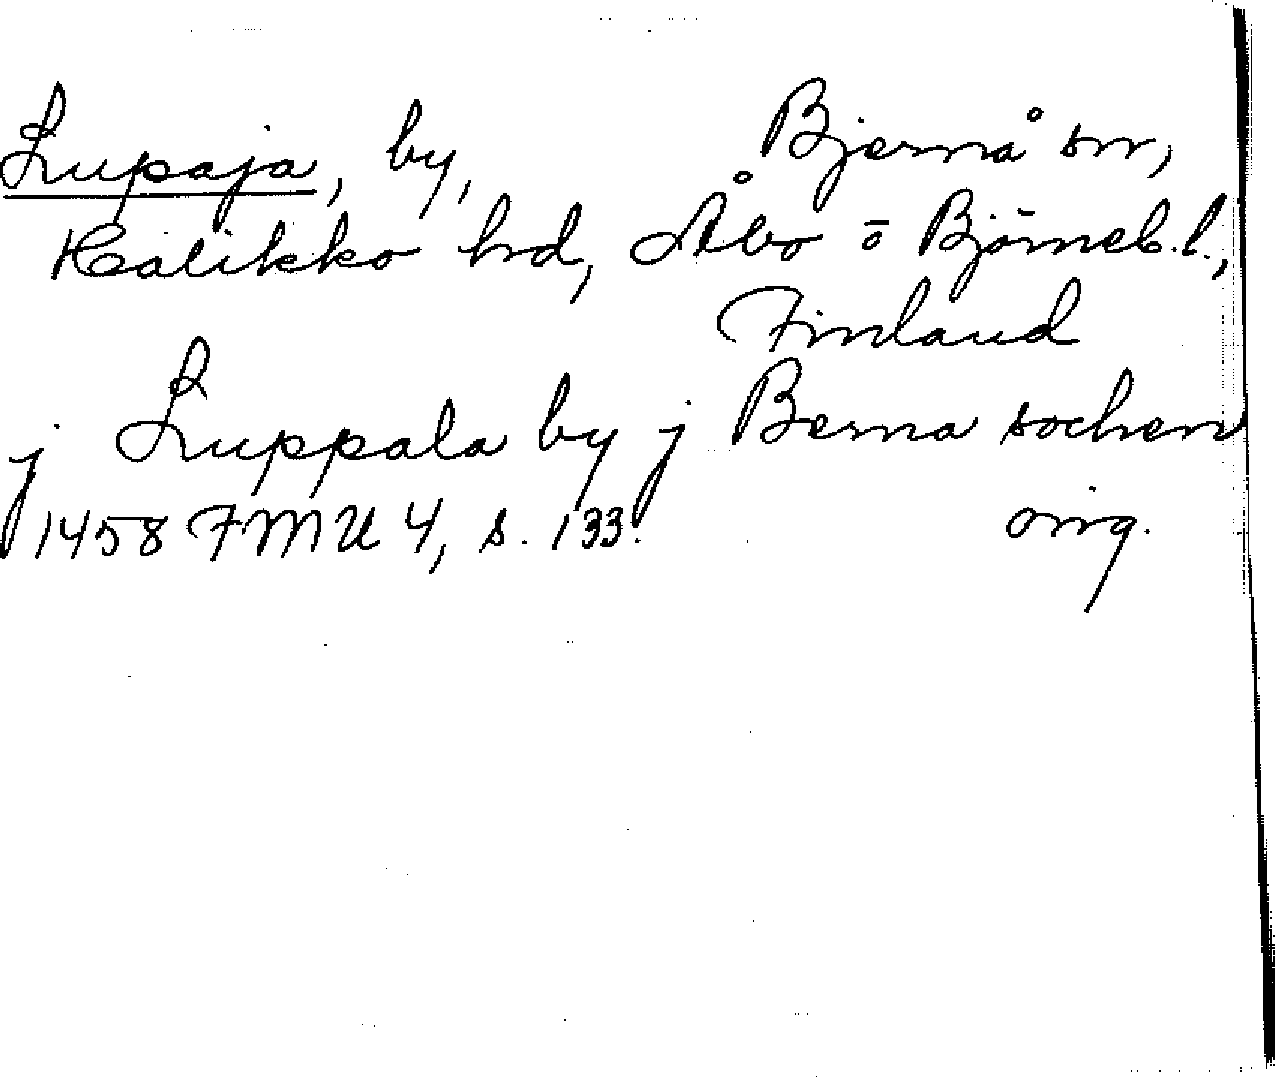 Lupaja, by, Bjernå sn,
Halikko hd, Åbo o Björneb. l.,
Finland
j Luppala by j Berna sochen
1458 FMU 4, s. 133. orig.